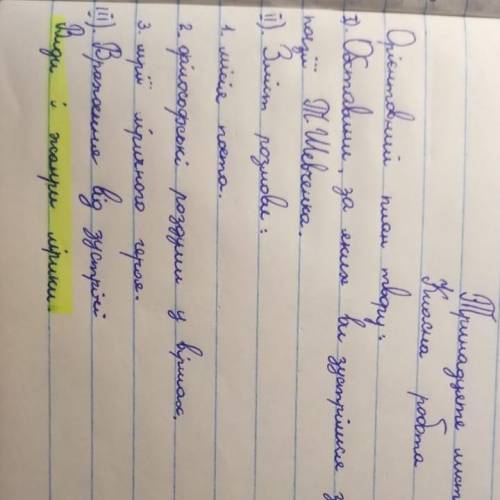 Тринадцяте лист
Класна робота
Орієнтовний план твору:
I). Обставини, за яких ви зустрілися з
поезії Т. Шевченка.
II). Зміст розмови:
1. місія поета.
2. філософські роздуми у віршах.
3. мрії ліричного героя.
III). Враження від зустрічі
Види і жанри лірики